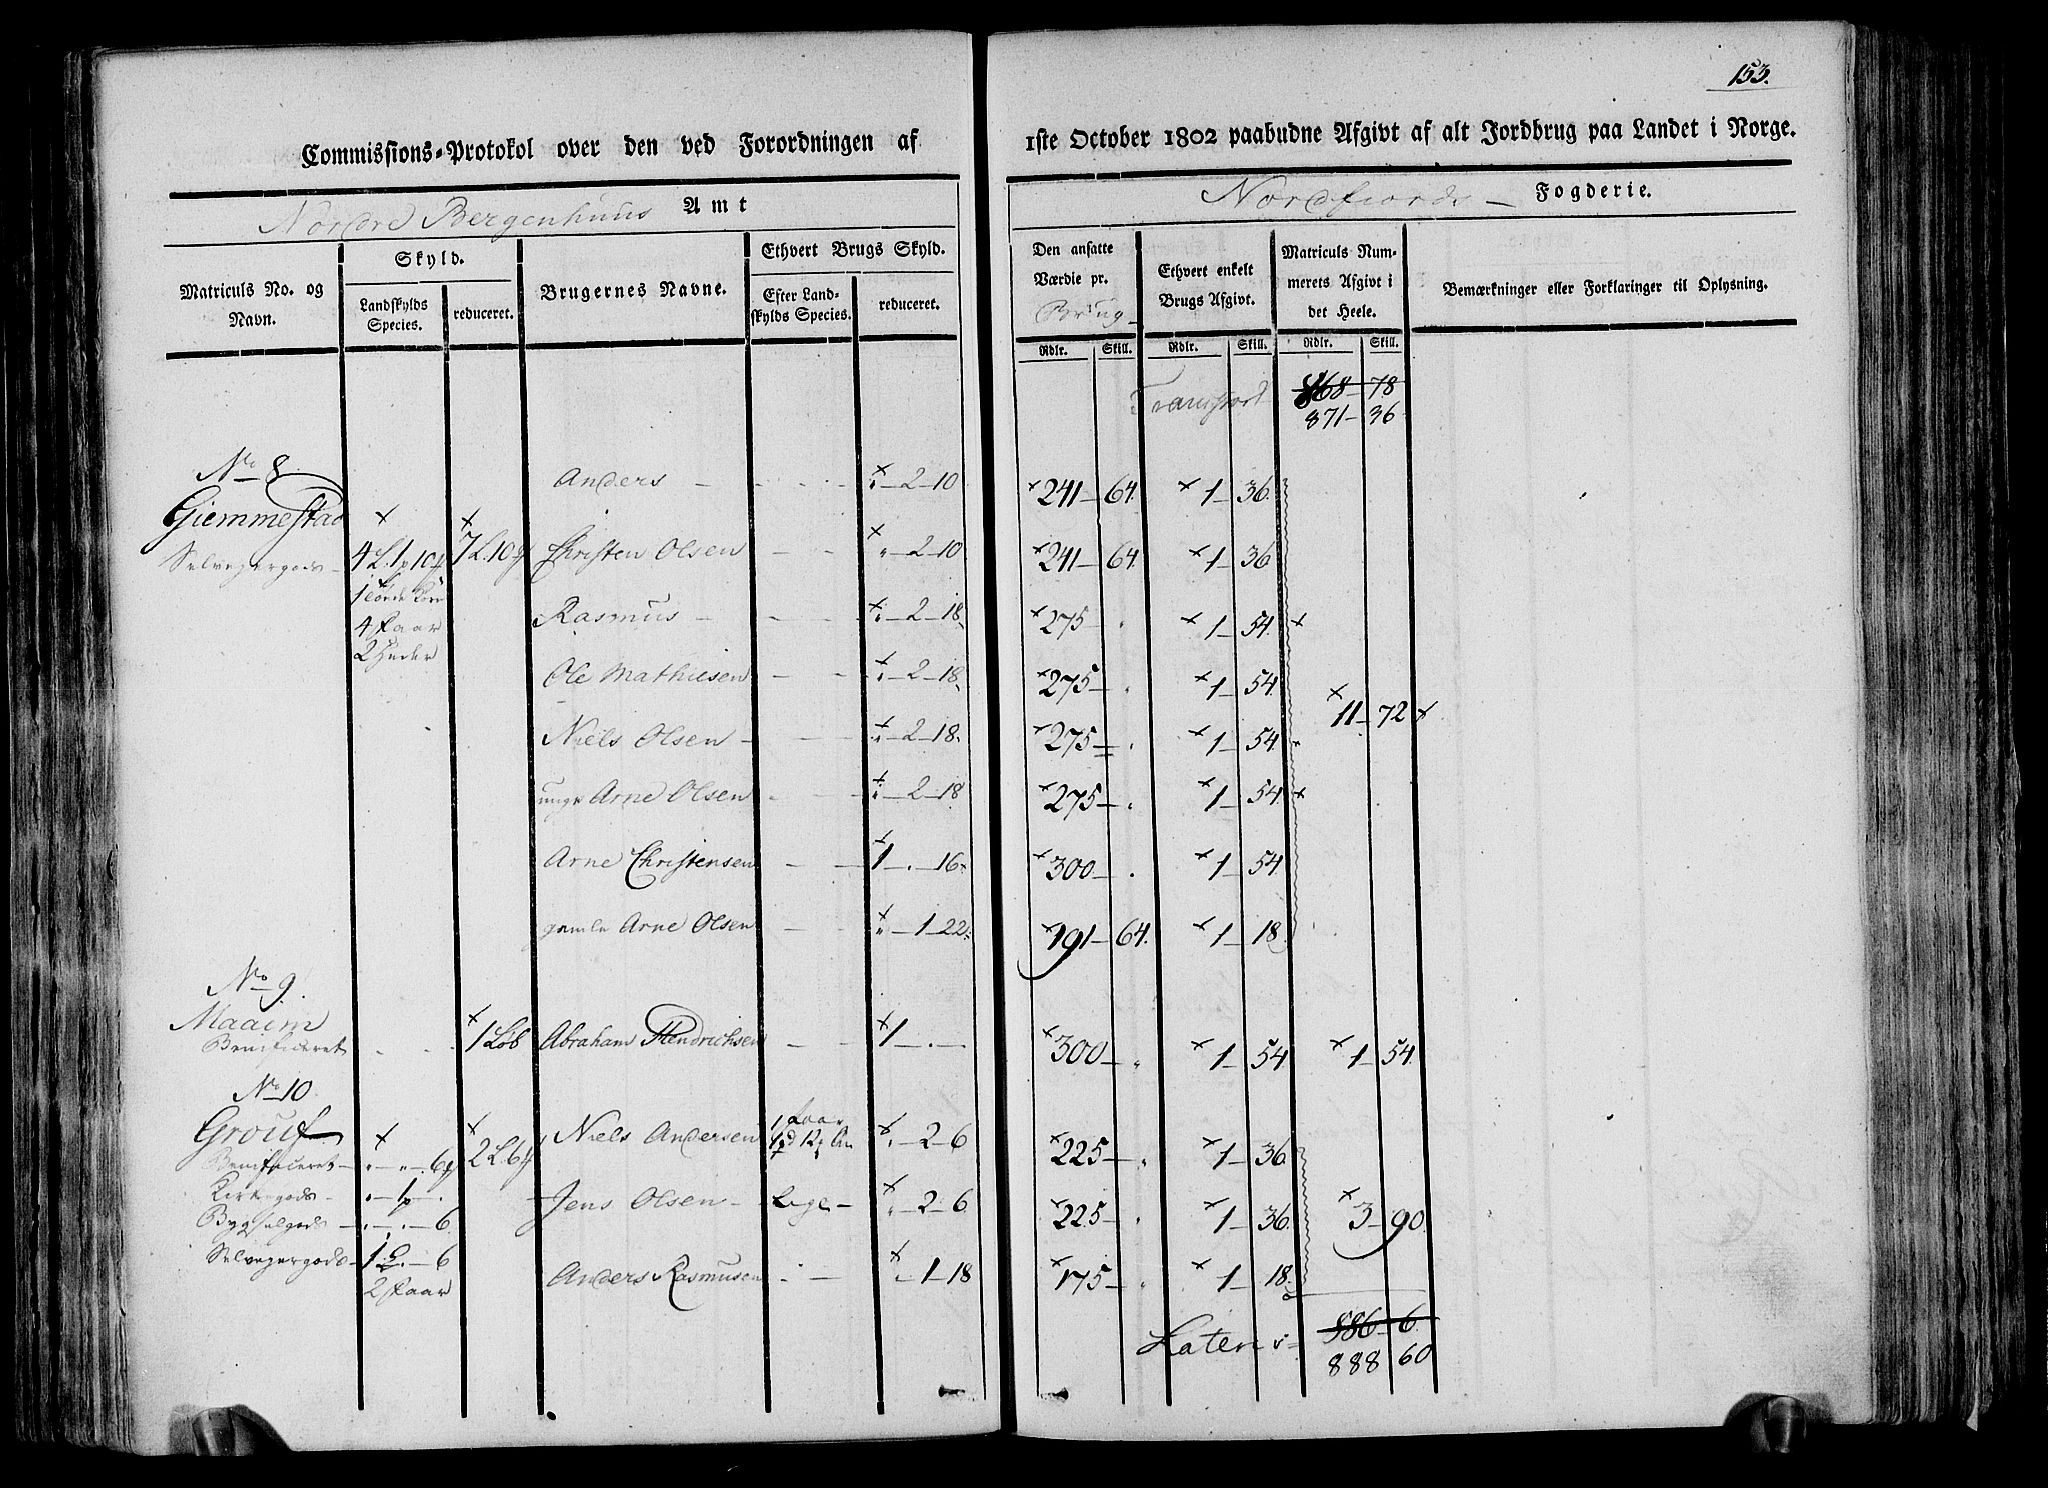 153.
Commissions-Protokol over den ved Forordningen af 1ste October 1802 paabudne Afgivt af alt Jordbrug paa Landet i Norge.
Nordre Bergenhuus Amt
Nordfiords Fogderie.
Matriculs No. og Navn.
Skyld.
Landskylds Species.
reduceret.
Brugernes Navne.
Ethvert Brugs Skyld.
Efter Landskylds Species.
reduceret.
Den ansatte Værdie pr. Brug
Ethvert enkelt Brugs Afgivt.
Matriculs Nummerets Afgivt i det Heele.
Bemærkninger eller Forklaringer til Oplysning.
Rdlr. Skill. Rdlr. Skill. Rdlr. Skill.
Transport 868 - 78
871 - 36
No 8
Giemmestad
Selveyergods
4 L. 1 p 10
7 L. 10
4 skaar
2 Huder
Anders - 2 - 10 241 - 64. 1 - 36.
Christen Olsen - 2 - 10 241 - 64. 1 - 36
Rasmus - 2 - 18 275 - 1 - 54.
Ole Mathiesen - 2 - 18 275 - 1 - 54.
11 - 72
Niels Olsen - 2 - 18 275 - 1 - 54.
unge Arne Olsen - 2 - 18 275 - 1 - 54.
Arne Christensen 1 - . - 16 300 - 1 - 54.
gamle Arne Olsen - 1 - 22 191 - 64. 1 - 18.
No 9.
Maaim
Beneficeret
1 Løb
Abraham Hendrichsen 1 - . - 300 - 1 - 54 1 - 54.
No 10.
Grouf
Beneficeret - 6
2 L. 6
Kirkegods - 1
Bygselgods - 6
Selveyergods - 1 - 6
2 skaar
Niels Andersen - 2 - 6 225 - 1 - 36.
Jens Olsen - Lige - 2 - 6 225 - 1 - 36. 3 - 90.
Anders Rasmusen - 1 - 18 175 - 1 - 18.
Lateris 886 - 6.
888 60